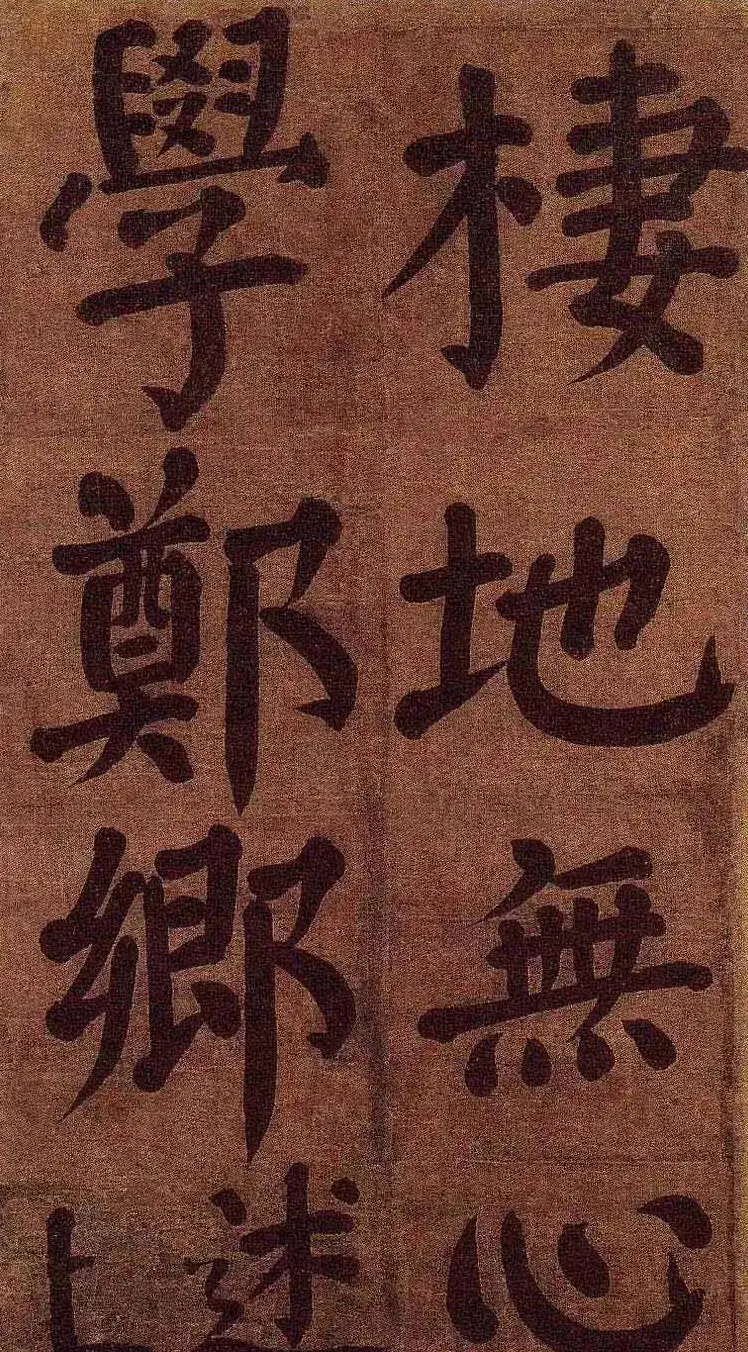 棲地無心
學鄭鄉
述